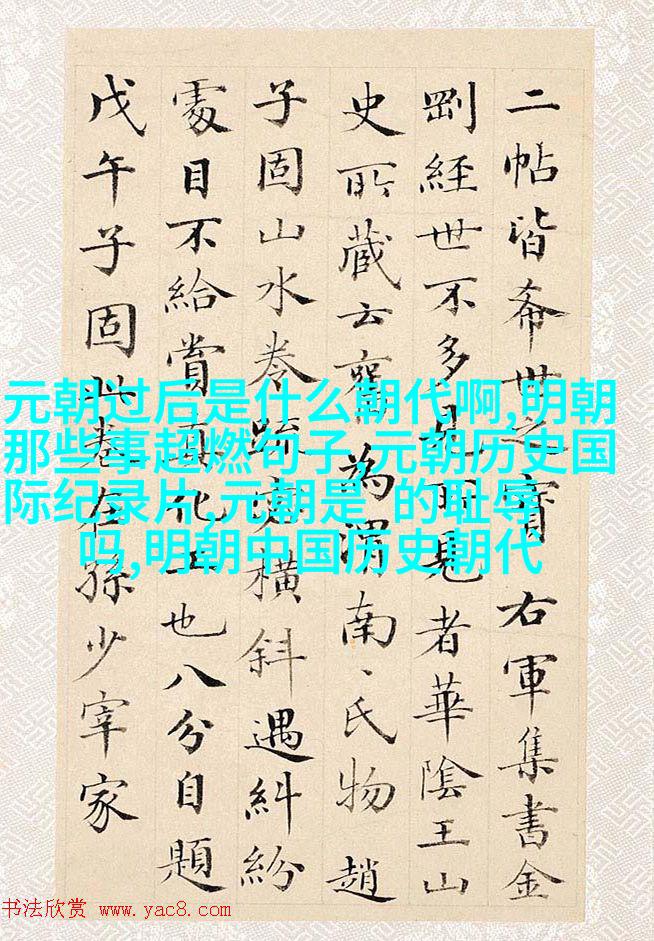 二帖皆希世之寶右軍集書金
剛經世不多見而見者華陰王山
史所藏云舊為渭南〻氏物趙
子固山水卷疏密橫斜遇糾紛
處目不給賞真化工也八分自題
戊午子固此卷在孫少宰家
元朝过后是什么朝代啊,明朝
那些事超燃句子,元朝历史国
际纪录片,元朝是 的耻辱
吗,明朝中国历史朝代
书法欣赏 www.yac8.com